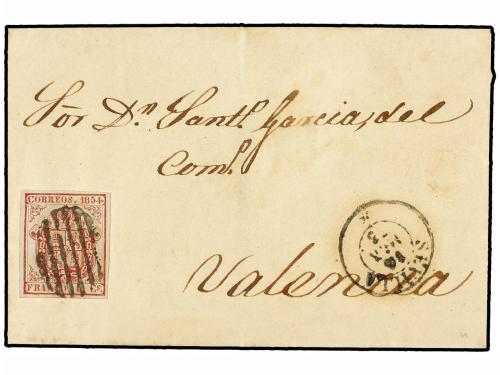 Sor Dn Santo Garcia, del
Como
Valencia
CORREOS. 1854.
FR